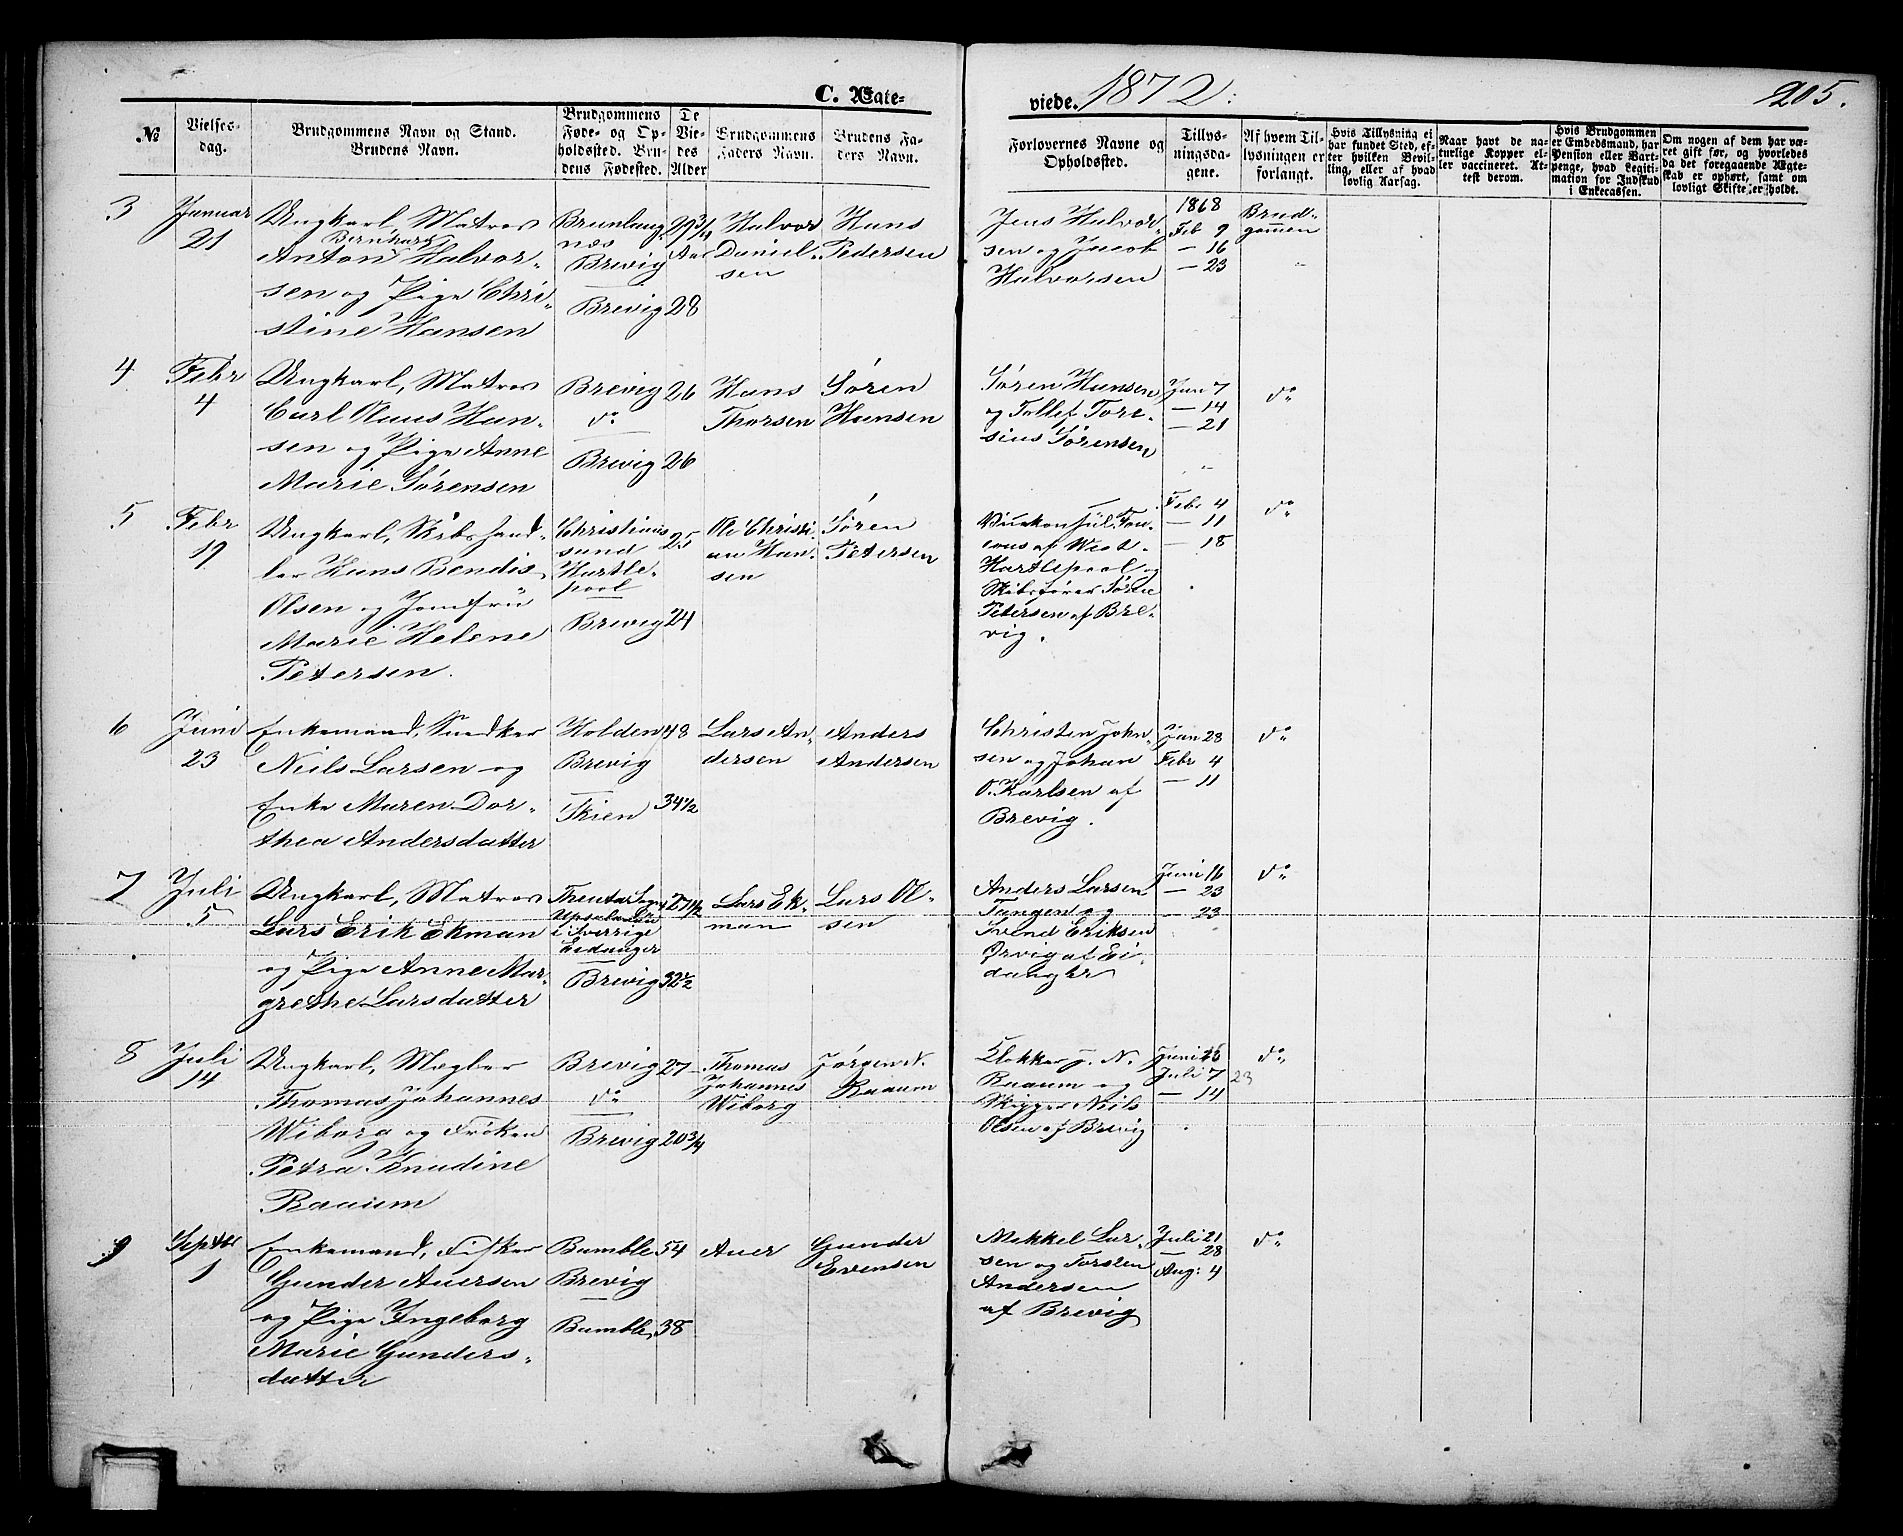 C. Ægte-
viede. 1872.
205.
№
Vielses-
dag.
Brudgommens Navn og Stand.
Brudens Navn.
Brudgommens
Føde- og Op-
holdssted. Bru-
dens Fødested.
De
Vie-
des
Alder
Brudgommens
Faders Navn.
Brudens Fa-
ders Navn.
Forlovernes Navne og
Opholdssted.
Tillys-
ningsda-
gene.
Af hvem Til-
lysningen er
forlangt.
Hvis Tillysning ei
har fundet Sted, ef-
ter hvilken Bevil-
ling, eller af hvad
lovlig Aarsag.
Naar havt de na-
turlige Kopper el-
ler vaccineret. At-
test derom.
Hvis Brudgommen
er Embedsmand, har
Pension eller Vart-
penge, hvad Legiti-
mation for Indskud
i Enkecassen.
Om nogen af dem har væ-
ret gift før, og hvorledes
da det foregaaende Ægte-
skab er ophørt, samt om
lovligt Skifte er holdt.
3
Januar
21
Ungkarl, Matros
Bernhard
Anton Halvor-
sen og Pige Chri-
stine Hansen
Brunlaug-
næs
Brevig
Brevig
29 3/4
Aar
28
Halvor
Daniel-
sen
Hans
Pedersen
Jens Halvor-
sen og Jacob
Halvorsen
1868
Feb 9
— 16
— 23
Brud-
gommen
4
Febr
4
Ungkarl, Matros
Carl Claus Han-
sen og Pige Anne
Marie Sørensen
Brevig
do
Brevig
26
26
Hans
Thorsen
Søren
Hansen
Søren Hansen
og Tollef Tore-
sius Sørensen
Jan 7
— 14
— 21
do
5
Febr
19
Ungkarl, Skibshand-
ler Hans Bendix
Olsen og Jomfru
Marie Helene
Petersen.
Christians
sund
Hartle-
pool
Brevig
25
24
Ole Christi-
an Han-
sen
Søren
Petersen
af West-
Hartlepool og
Skibsfører Søren
Petersen af Bre-
vig.
Febr 4
— 11
— 18
do
6
Juni
23
Enkemand, Snedker
Niels Larsen og
Enke Maren Dor-
thea Andersdatter
Holden
Brevig
Skien
48
34 1/2
Lars An-
dersen
Anders
Andersen
Christen John-
sen og Johan
O. Karlsen af
Brevig.
Jan 28
Febr 4
— 11
do
7
Juli
5
Ungkarl, Matros
Lars Erik Ekman
og Pige Anne Mar-
grethe Larsdatter
Upsala Län
i Sverrige
Eidanger
Brevig
27 1/2
32 1/2
Lars Ek-
man
Lars Ol-
sen
Anders Larsen
Tangen og
Svend Eriksen
Ørvig af Ei-
danger
Juni 16
— 23
— 23
do
8
Juli
14
Ungkarl, Mægler
Thomas Johannes
Wiborg og Frøken
Petra Knudine
Raaum
Brevig
do
Brevig
27
20 3/4
Thomas
Johannes
Wiborg
Jørgen N.
Raaum
Klokker J. N.
Raaum og
Skipper Niels
Olsen af Brevig
Juni
Juli 7
— 14
23
do
9
Septbr
1
Enkemand, Fisker
Gunder Auersen
og Pige Ingeborg
Marie Gunders-
datter
Bamble
Brevig
Bamble
54
38
Auer
Gunder
Evensen
Mekkel Lar-
sen og Torsten
Andersen
af Brevig
Juli 21
— 28
Aug: 4
do